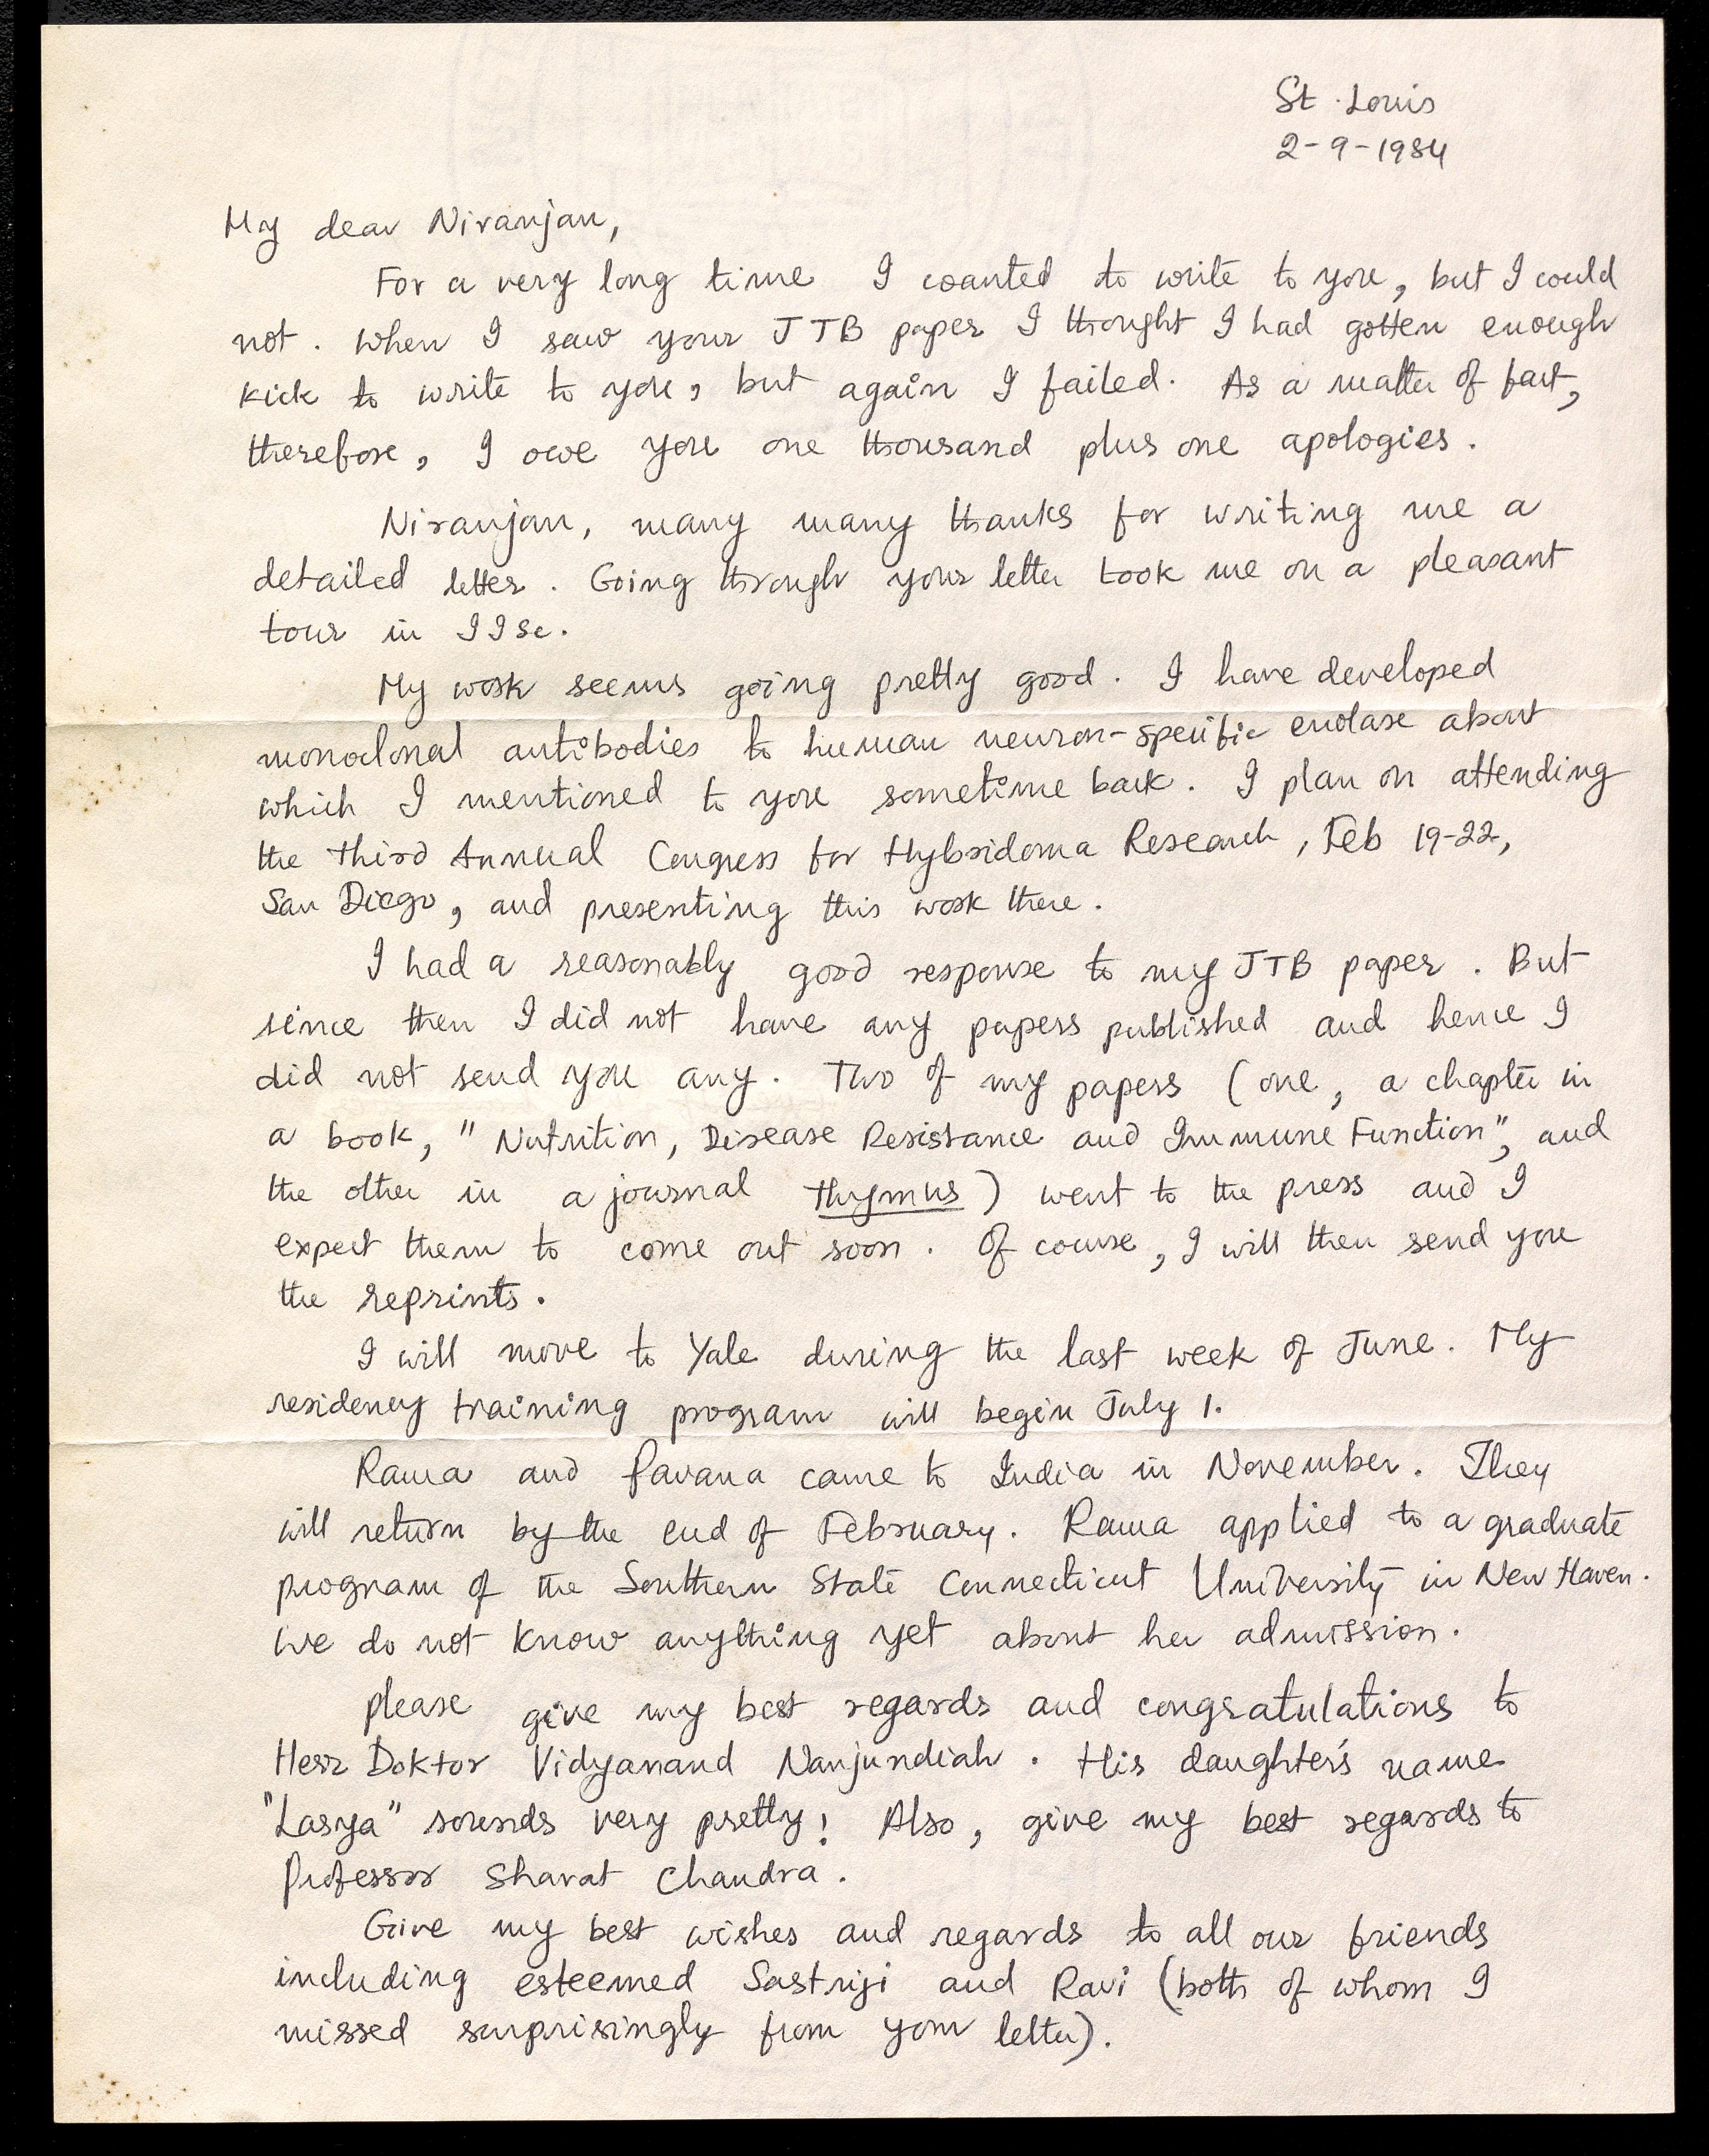 St. Louis
2-9-1984
My dear Niranjan,
For a very long time I wanted to write to you, but I could
not. When I saw your JTB paper I thought I had gotten enough
kick to write to you, but again I failed. As a matter of fact,
therefore, I owe you one thousand plus one apologies.
Niranjan, many many thanks for writing me a
detailed letter. Going through your letter took me on a pleasant
tour in IISc.
My work seems going pretty good. I have developed
monoclonal antibodies to human neuron-specific enolase about
which I mentioned to you sometime back. I plan on attending
the Third Annual Congress for Hybridoma Research, Feb 19-22,
San Diego, and presenting this work there.
I had a reasonably good response to my JTB paper. But
since then I did not have any papers published and hence I
did not send you any. Two of my papers (one, a chapter in
a book, "Nutrition, Disease Resistance and Immune Function", and
the other in a journal Thymus) went to the press and I
expect them to come out soon. Of course, I will then send you
the reprints.
I will move to Yale during the last week of June. My
residency training program will begin July 1.
Rama and Pavana came to India in November. They
will return by the end of February. Rama applied to a graduate
program of the Southern State Connecticut University in New Haven.
We do not know anything yet about her admission.
Please give my best regards and congratulations to
Herr Doktor Vidyanand Nanjundiah. His daughter's name
"Lasya" sounds very pretty! Also, give my best regards to
Professor Sharat Chandra.
Give my best wishes and regards to all our friends
including esteemed Sastriji and Ravi (both of whom I
missed surprisingly from your letter).